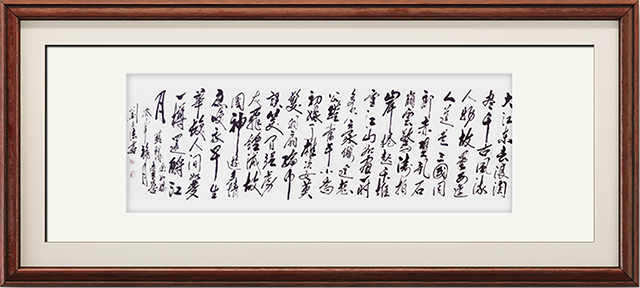 大江东去浪淘
尽千古风流
人物故垒西边
人道是三国周
郎赤壁乱石
崩云惊涛拍
岸卷起千堆
雪江山如画一时
多少豪杰遥想
公瑾当年小乔
初嫁了雄姿英
发羽扇纶巾
谈笑间强虏
灰飞烟灭故
国神游多情
应笑我早生
华发人间如梦
一樽还酹江
月